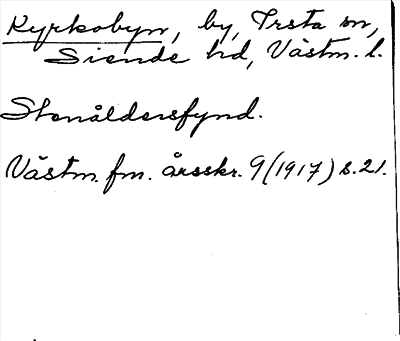 Kyrkobyn, by, Irsta sn,
Siende hd, Västm. l.
Stenåldersfynd.
Västm. fm. årsskr. 9 (1917) s. 21.